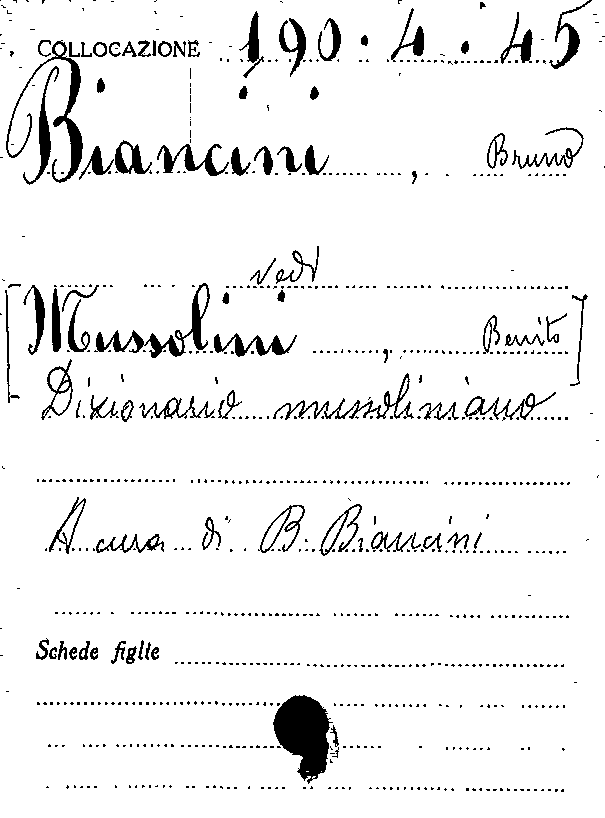 COLLOCAZIONE 190.4.45
Biancini, Bruno
vedi
[Mussolini, Benito]
Dizionario mussoliniano
A cura di B. Biancini
Schede figlie